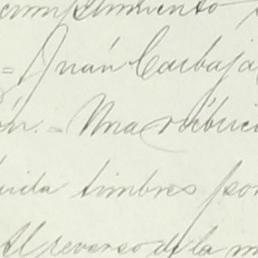 cumplimiento
= Juán Carbaja
ón. = Una rúbric
uida timbres por
Al reverso de la m